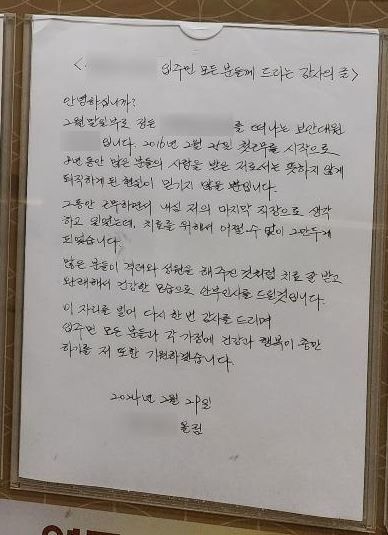 < 입주민 모든 분들께 드리는 감사의 글>
안녕하십니까?
2월 말일부로 정든 를 떠나는 보안대원
입니다. 2016년 2월 첫근무를 시작으로
8년 동안 많은 분들의 사랑을 받은 저로서는 뜻하지 않게
퇴직하게 된 현실이 믿기지 않을 뿐입니다.
그동안 근무하면서 내심 저의 마지막 직장으로 생각
하고 있었는데, 치료를 위해서 어쩔 수 없이 그만두게
되었습니다.
많은 분들이 격려와 성원을 해 주신 것처럼 치료 잘 받고
완쾌해서 건강한 모습으로 안부인사를 드릴것입니다.
이 자리를 빌어 다시 한 번 감사를 드리며
입주민 모든 분들과 각 가정에 건강과 행복이 충만
하기를 저 또한 기원하겠습니다.
2024년 2월 29일
올림